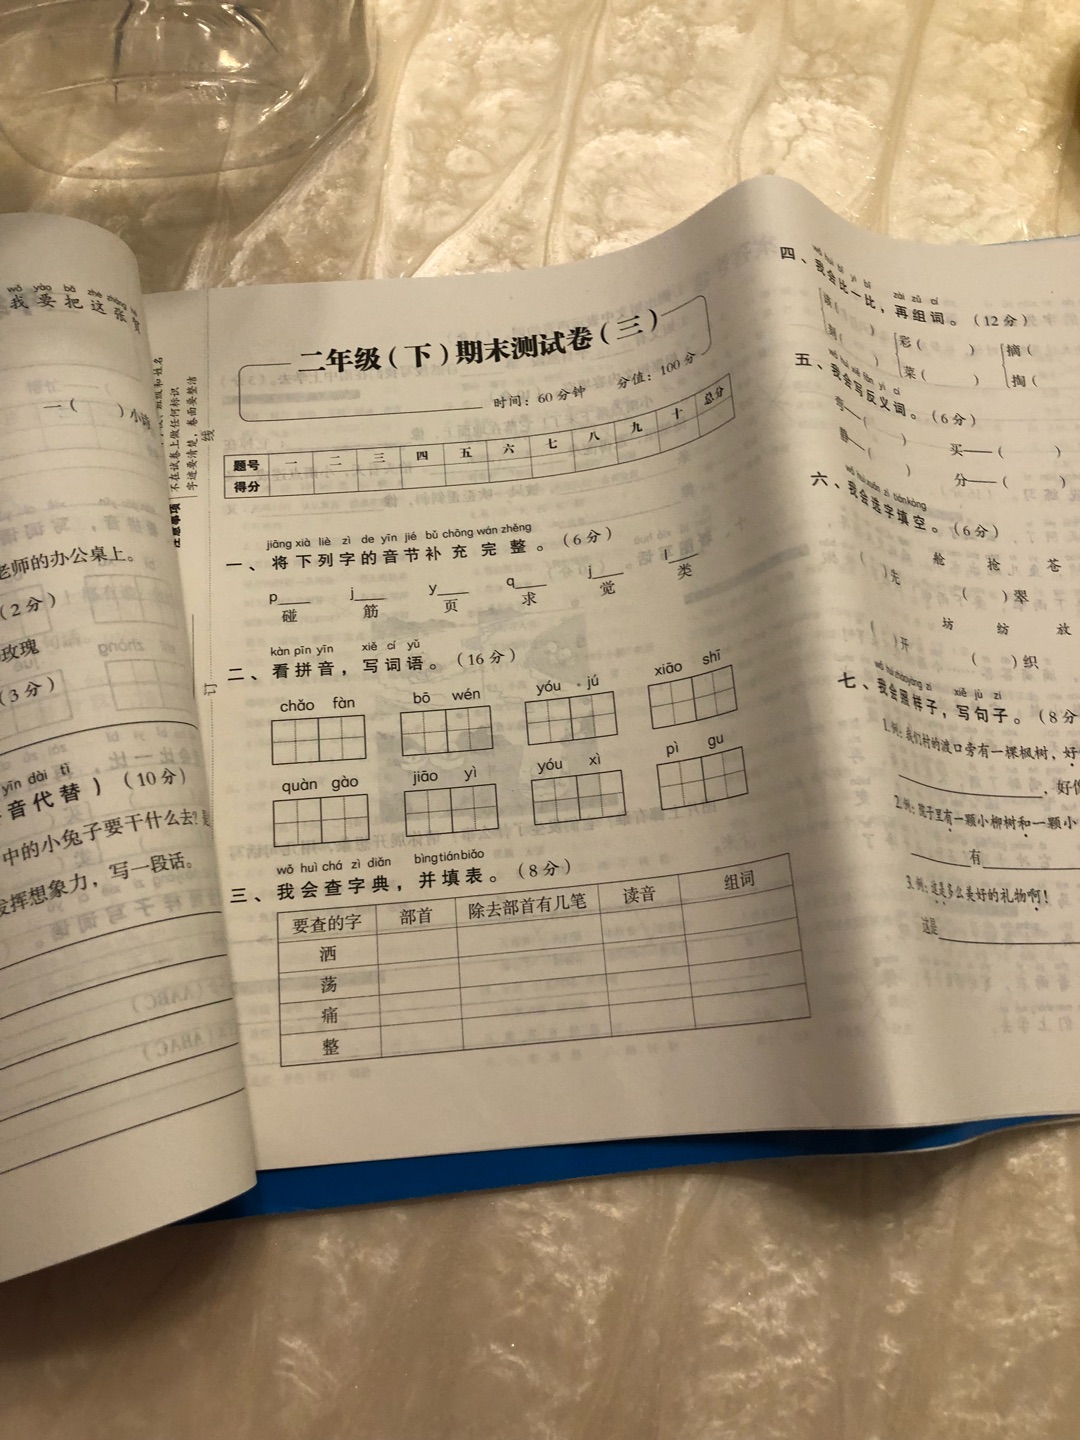 wǒ yào bǎ zhè zhāng
我要把这张
一(　　)小
老师的办公桌上。
(2分)
玫瑰
(3分)
yīn dài tì
音代替)(10分)
中的小兔子要干什么去?
发挥想象力，写一段话。
不在试卷上做任何标识
字迹要清楚，卷面要整洁
线
订
二年级(下)期末测试卷(三)
时间：60分钟　分值：100分
题号 一 二 三 四 五 六 七 八 九 十 总分
得分
jiāng xià liè zì de yīn jié bǔ chōng wán zhěng
一、将下列字的音节补充完整。(6分)
p____ j____ y____ q____ j____ l____
碰 筋 页 求 觉 类
kàn pīn yīn xiě cí yǔ
二、看拼音，写词语。(16分)
chǎo fàn bō wén yóu jú xiāo shī
quàn gào jiāo yì yóu xì pì gu
wǒ huì chá zì diǎn bìng tián biǎo
三、我会查字典，并填表。(8分)
要查的字 部首 除去部首有几笔 读音 组词
洒
荡
痛
整
四、我会比一比，再组词。(12分)
彩(　　) 摘(
菜(　　) 掏(
五、我会写反义词。(6分)
买——(　　)
分——(
六、我会选字填空。(6分)
舱 抢 苍
(　　)先 (　　)翠
坊 纺 放
(　　)开 (　　)织
七、我会照样子，写句子。(8分
1.例：我们村的渡口旁有一棵枫树，好
____________，好像
2.例：院子里有一颗小柳树和一颗小
______有______
3.例：这是多么美好的礼物啊！
这是____________